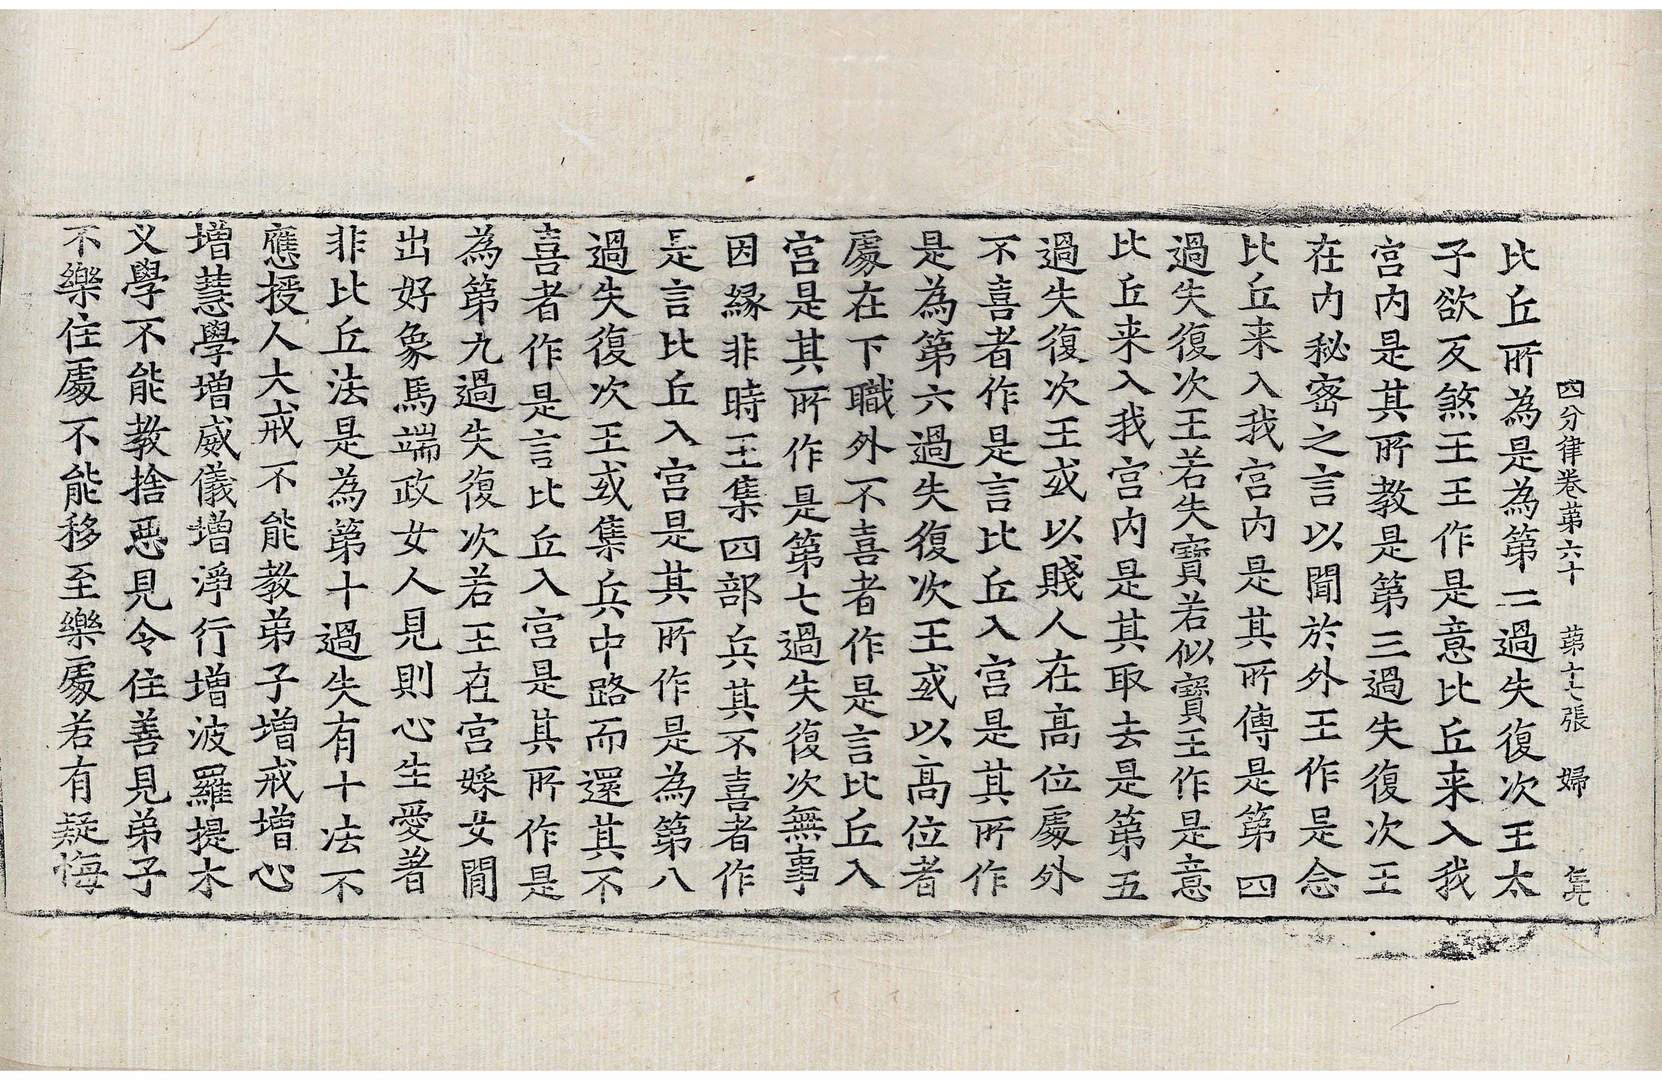 四分律卷第六十　第十七張　婦
比丘所為是為第二過失復次王太
子欲反煞王王作是意比丘来入我
宮内是其所教是第三過失復次王
在内秘密之言以聞於外王作是念
比丘来入我宮内是其所傳是第四
過失復次王若失寶若似寶王作是意
比丘来入我宮内是其取去是第五
過失復次王或以賤人在高位處外
不喜者作是言比丘入宮是其所作
是為第六過失復次王或以高位者
處在下職外不喜者作是言比丘入
宮是其所作是第七過失復次無事
因緣非時王集四部兵其不喜者作
是言比丘入宮是其所作是為第八
過失復次王或集兵中路而還其不
喜者作是言比丘入宮是其所作是
為第九過失復次若王在宮婇女閒
出好象馬端政女人見則心生愛著
非比丘法是為第十過失有十法不
應授人大戒不能教弟子增戒增心
增慧學增威儀增淨行增波羅提木
叉學不能教捨惡見令住善見弟子
不樂住處不能移至樂處若有疑悔